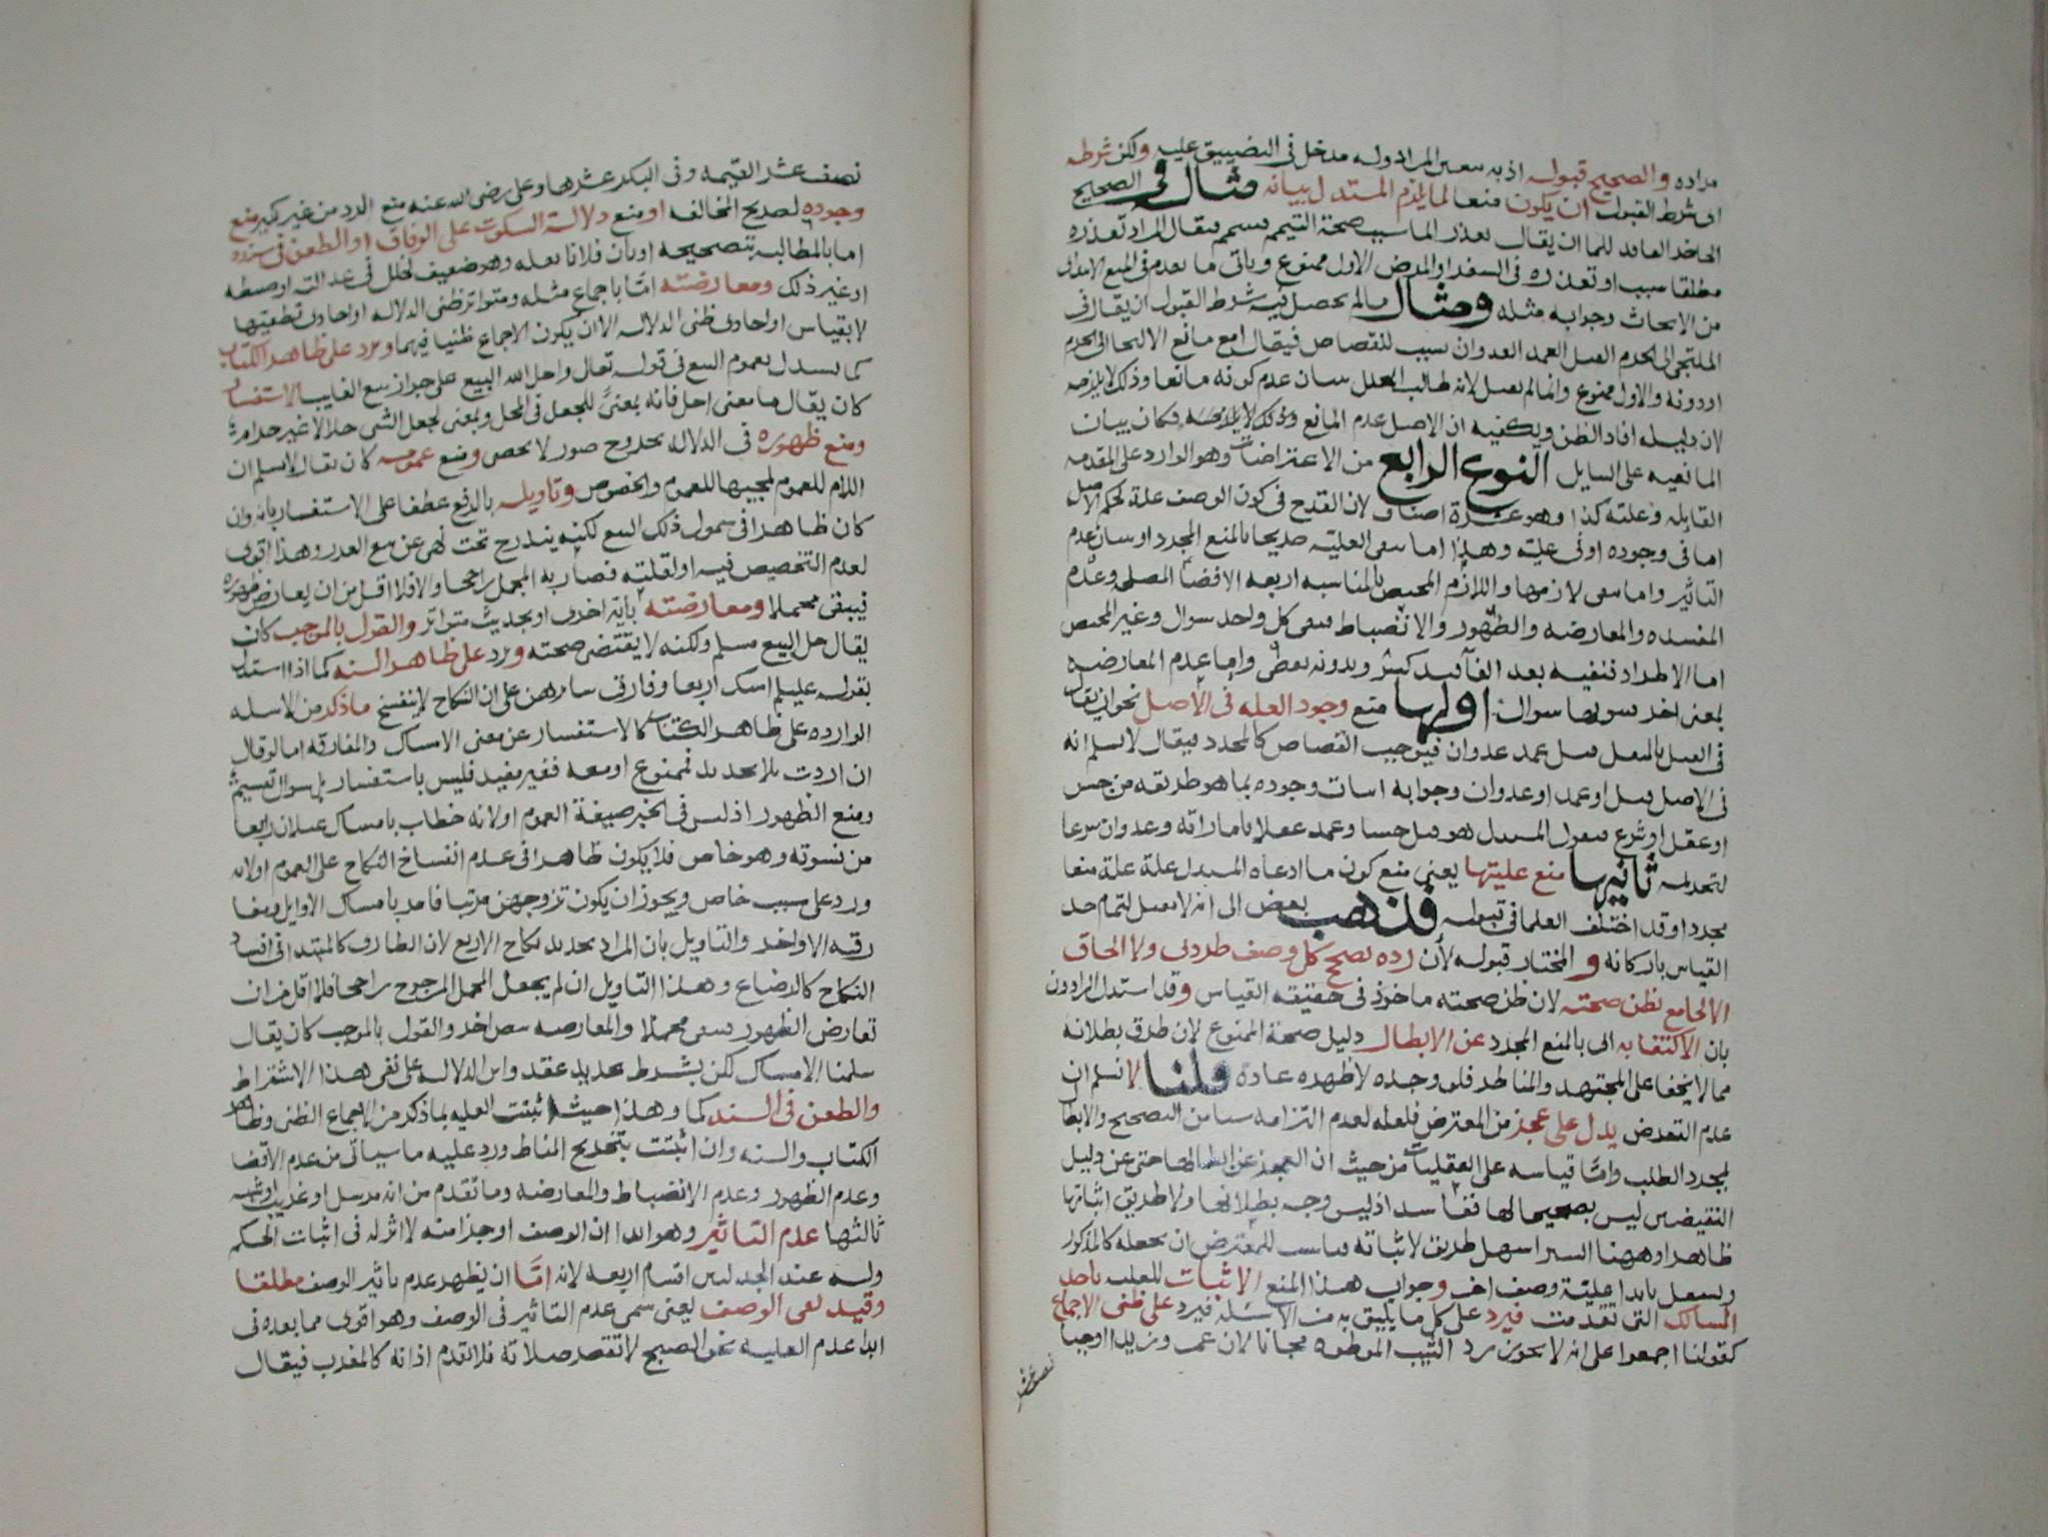 مراده والصحيح قبوله اذ به يتعين المراد وله مدخل فى التضييق عليه ولكن شرطه
اى شرط القبول ان يكون منعا لما يلزم المستدل بيانه مثال فى الصحيح
الحاضر الفاقد للما ان يقال تعذر الما سبب صحة التيمم فيتيمم فيقال المراد تعذره
مطلقا سبب او تعذره فى السفر او المرض الاول ممنوع وياتى ما تقدم فى المنع الابتدائى
من الابحاث وجوابه مثله ومثال ما لم يحصل فيه شرط القبول ان يقال فى
الملتجى الى الحرم القتل العمد العدوان سبب للقصاص فيقال امع مانع الالتجا الى الحرم
او دونه والاول ممنوع وانما لم يقبل لانه طالب المعلل ببيان عدم كونه مانعا وذلك لا يلزمه
لان دليله افاد الظن ويكفيه ان الاصل عدم المانع وذلك لا يلزمه فكان بيان
المانعيه على السايل النوع الرابع من الاعتراضات وهو الوارد على المقدمه
القابله وعلته كذا وهو عشرة اصناف لان القدح فى كون الوصف علة لحكم الاصل
اما فى وجوده او فى عليته وهذا اما بنفى العلية صريحا بالمنع المجرد او ببيان عدم
التاثير واما بنفى لازمها واللازم المختص بالمناسبه اربعه الافضا المصلحه وعدم
المفسده والمعارضه والظهور والانضباط فنفى كل واحد سوال وغير المختص
اما الاطراد فنفيه بعد الغا قيد كسر وبدونه نقض واما عدم المعارضه
بمعنى اخر سواها سوال اولها منع وجود العله فى الاصل نحو ان يقال
فى القتل بالمثقل قتل عمد عدوان فيوجب القصاص كالمحدد فيقال لا نسلم انه
فى الاصل قتل او عمد او عدوان وجوابه اثبات وجوده بما هو طريقه من حس
او عقل او شرع فيقول المستدل هو قتل حسا وعمد عقلا باماراته وعدوان شرعا
لتحريمه ثانيها منع عليتها يعنى منع كون ما ادعاه المستدل علة علة منعا
مجردا وقد اختلف العلما فى قبوله فذهب بعض الى انه لا يقبل لتمام حد
القياس باركانه و المختار قبوله لأن رده تصحيح كل وصف طردى ولا الحاق
الا لجامع يظن صحته لان ظن صحته ماخوذ فى حقيقه القياس وقد استدل الرادون
بان الاكتفا به اى بالمنع المجرد عن الابطال دليل صحة الممنوع لان طرق بطلانه
مما لا يخفا على المجتهد والمناظر فلو وجده لاظهره عادة قلنا لا نسلم ان
عدم التعرض يدل على عجز من المعترض فلعله لعدم التزامه شيا من التصحيح والابطال
لمجرد الطلب واما قياسه على العقليات من حيث ان العجز عن ابطالها حتى عن دليل
النقيضين ليس بصحيحا لها ففاسد اذ ليس وجه بطلانها ولا طريق اثباتها
ظاهرا وههنا السبر اسهل طريق لاثباته فناسب للمعترض ان يجعله كالمذكور
ويستقل بابدا علية وصف اخر وجواب هذا المنع الاثبات للعلة باحد
المسالك التى تقدمت فيرد على كل ما يليق به من الاسئله فيرد على ظنى الاجماع
كقولنا اجمعوا على انه لا يجوز رد الثيب الموطوه مجانا لان عمر وزيدا اوجبا
نصف عشر
نصف عشر القيمه وفى البكر عشرها وعلى رضى الله عنه منع الرد من غير نكير منع
وجوده لصريح المخالفه او منع دلالة السكوت على الوفاق او الطعن فى سنده
اما بالمطالبه بتصحيحه او بان فلانا نقله وهو ضعيف لخلل فى عدالته او ضبطه
او غير ذلك ومعارضته امّا باجماع مثله ومتواتر ظنى الدلاله او احادى قطعيتها
لا بقياس او احادى ظنى الدلاله الا ان يكون الاجماع ظنيا فيهما ويرد على ظاهر الكتاب
كما يستدل بعموم البيع فى قوله تعالى واحل الله البيع على جواز بيع الغايب الاستفسار
كان يقال ما معنى احل فانه بمعنى للجعل فى المحل وبمعنى لجعل الشى حلالا غير حرام
ومنع ظهوره فى الدلاله بخروج صور لا تحصى ومنع عمومه كان يقال لا نسلم ان
اللام للعموم لمجيئها للعموم والخصوص وتاويله بالرفع عطفا على الاستفسار بانه وان
كان ظاهرا فى شمول ذلك البيع لكنه يندرج تحت نهى عن بيع الغرر وهذا اقوى
لعدم التخصيص فيه او لقلته فصار به المجمل راجحا والا فلا اقل من ان يعارض ظهوره
فيبقى مجملا ومعارضته بآية اخرى او بحديث متواتر والقول بالموجب كان
يقال حل البيع مسلم ولكنه لا يقتضى صحته ويرد على ظاهر السنه كما اذا استدل
بقوله عليلم امسك اربعا وفارق سايرهن على ان النكاح لا ينفسخ ما ذكر من الاسله
الوارده على ظاهر الكتاب كالاستفسار عن معنى الامساك والمفارقه اما لو قال
ان اردت بلا تجديد فممنوع او معه فغير مفيد فليس باستفسار بل سوال تقسيم
ومنع الظهور اذ ليس فى الخبر صيغة العموم او لانه خطاب بامساك غيلان اربعا
من نسوته وهو خاص فلا يكون ظاهرا فى عدم انفساخ النكاح على العموم او لانه
ورد على سبب خاص ويجوز ان يكون تزوجهن مرتبا فامر بامساك الاوايل ومفا
رقه الاواخر والتاويل بان المراد تجديد نكاح الاربع لان الطارى كالمبتدا فى افساد
النكاح كالرضاع وهذا التاويل ان لم يجعل المجمل المرجوح راجحا فلا اقل من ان
تعارض الظهور فيبقى مجملا والمعارضه بنص اخر والقول بالموجب كان يقال
سلمنا الامساك لكن بشرط تجديد عقد واين الدلاله على نفى هذا الاشتراط
والطعن فى السند كما وهذا حيث اثبتت العليه بما ذكر من الاجماع الظنى وظاهر
الكتاب والسنه وان اثبتت بتخريج المناط ورد عليه ما سياتى من عدم الافضا
وعدم الظهور وعدم الانضباط والمعارضه وما تقدم من انه مرسل او غريب او شبه
ثالثها عدم التاثير وهو ابدا ان الوصف او جزا منه لا اثر له فى اثبات الحكم
وله عند الجدليين اقسام اربعه لانه امّا ان يظهر عدم تاثير الوصف مطلقا
وقيد لغى الوصف يعنى سمى عدم التاثير فى الوصف وهو اقوى مما بعده فى
ابدا عدم العليه نحو الصبح لا تقصر صلاته فلا تقدم اذانه كالمغرب فيقال